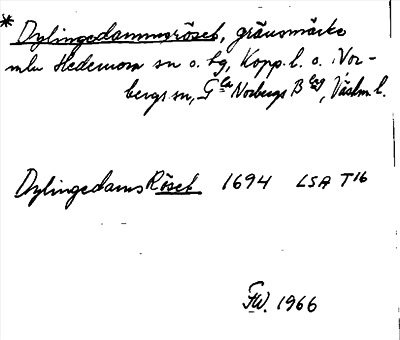 * Dylingedammsröset, gränsmärke
mlu Hedemora sn o. tg, Kopp. l. o. Nor-
bergs sn, Gla Norbergs Blg, Västm. l.
Dylingedams Röset 1694 LSA T16
FW. 1966